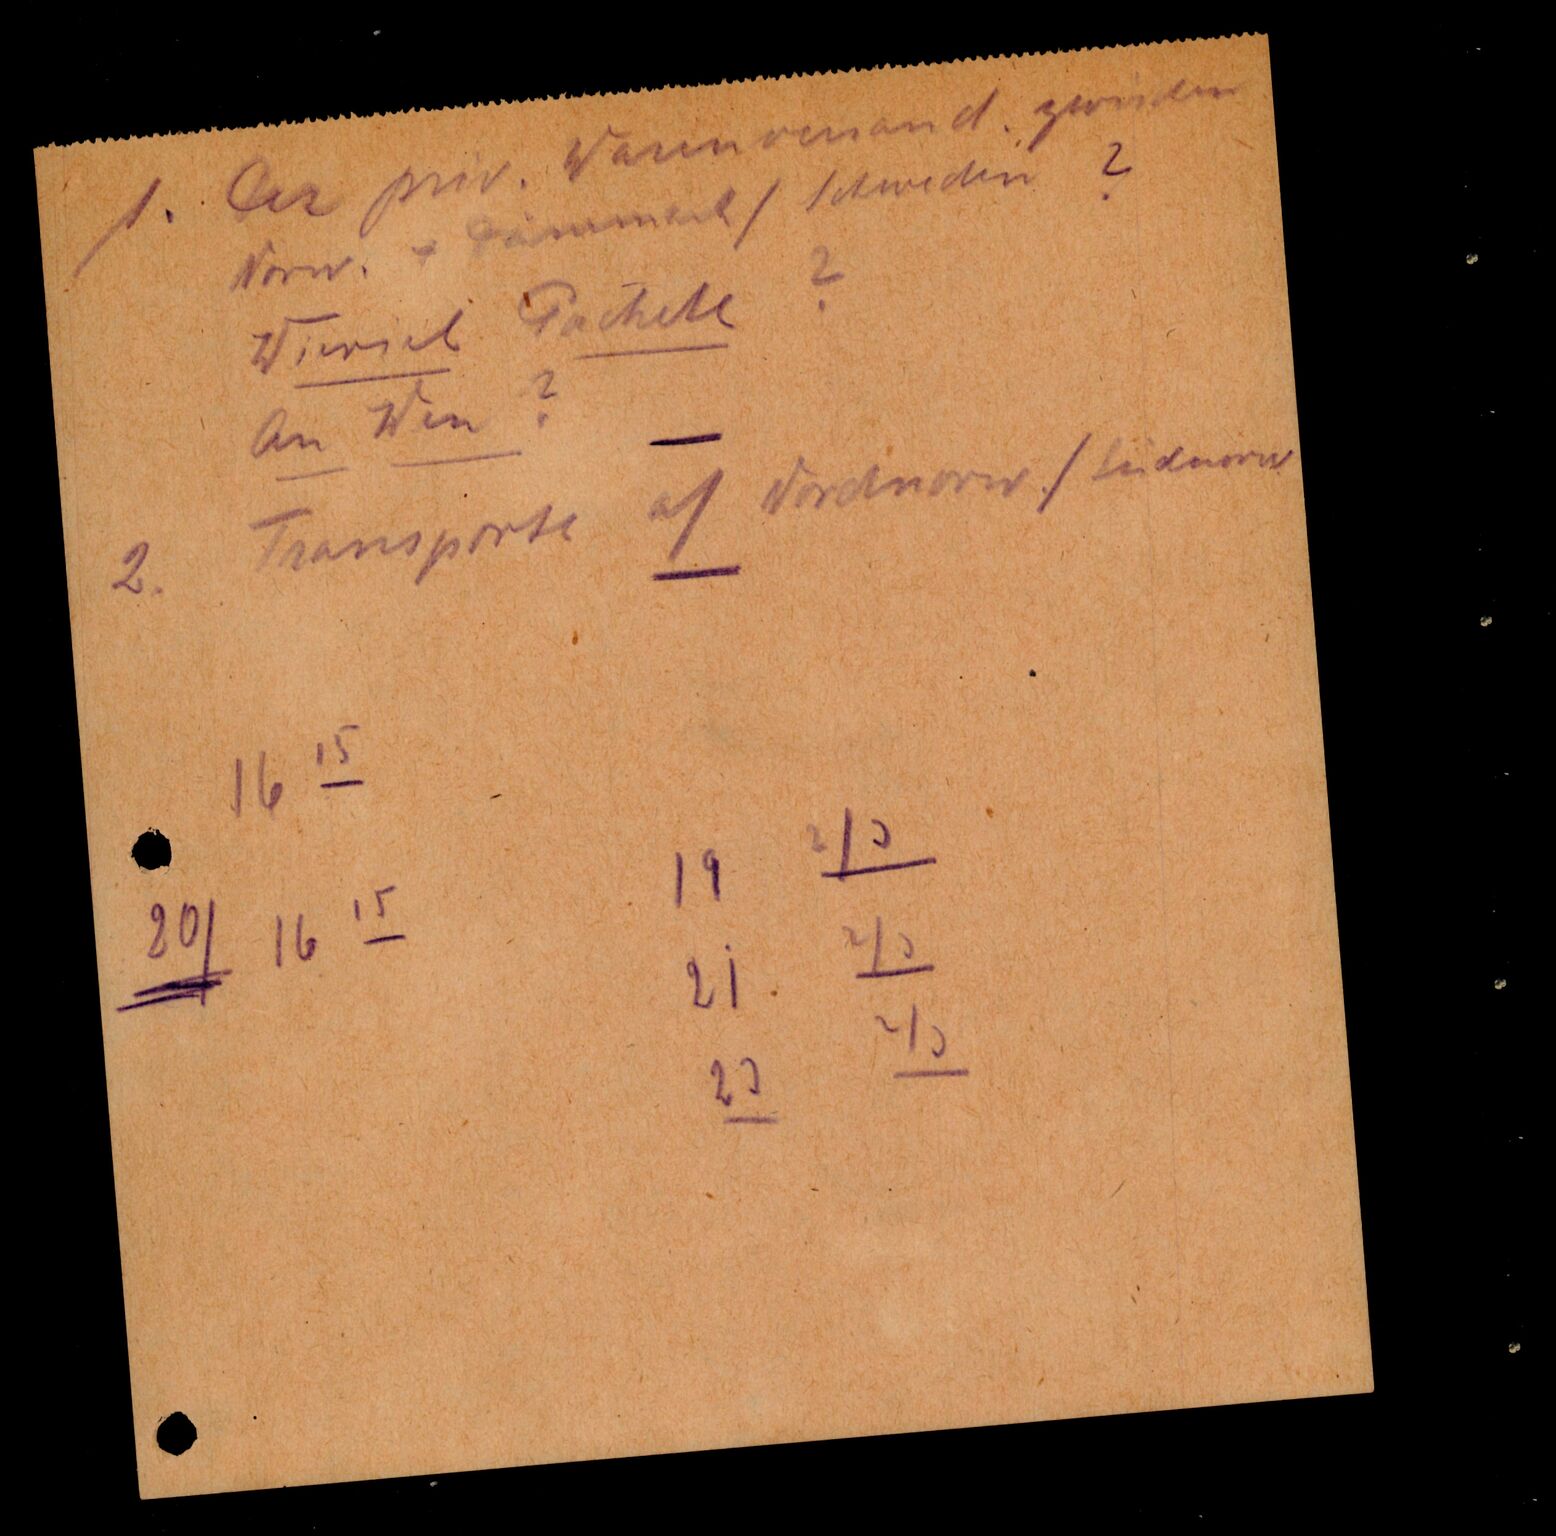 1. Der priv. Warenversand. zwischen
Norw. + Dänemark / Schweden ?
Wieviel Packete ?
An Wen ?
2. Transporte auf Nordnorw. / Südnorw
16 15
19 2/3
20/ 16 15
21 2/3
23 2/3